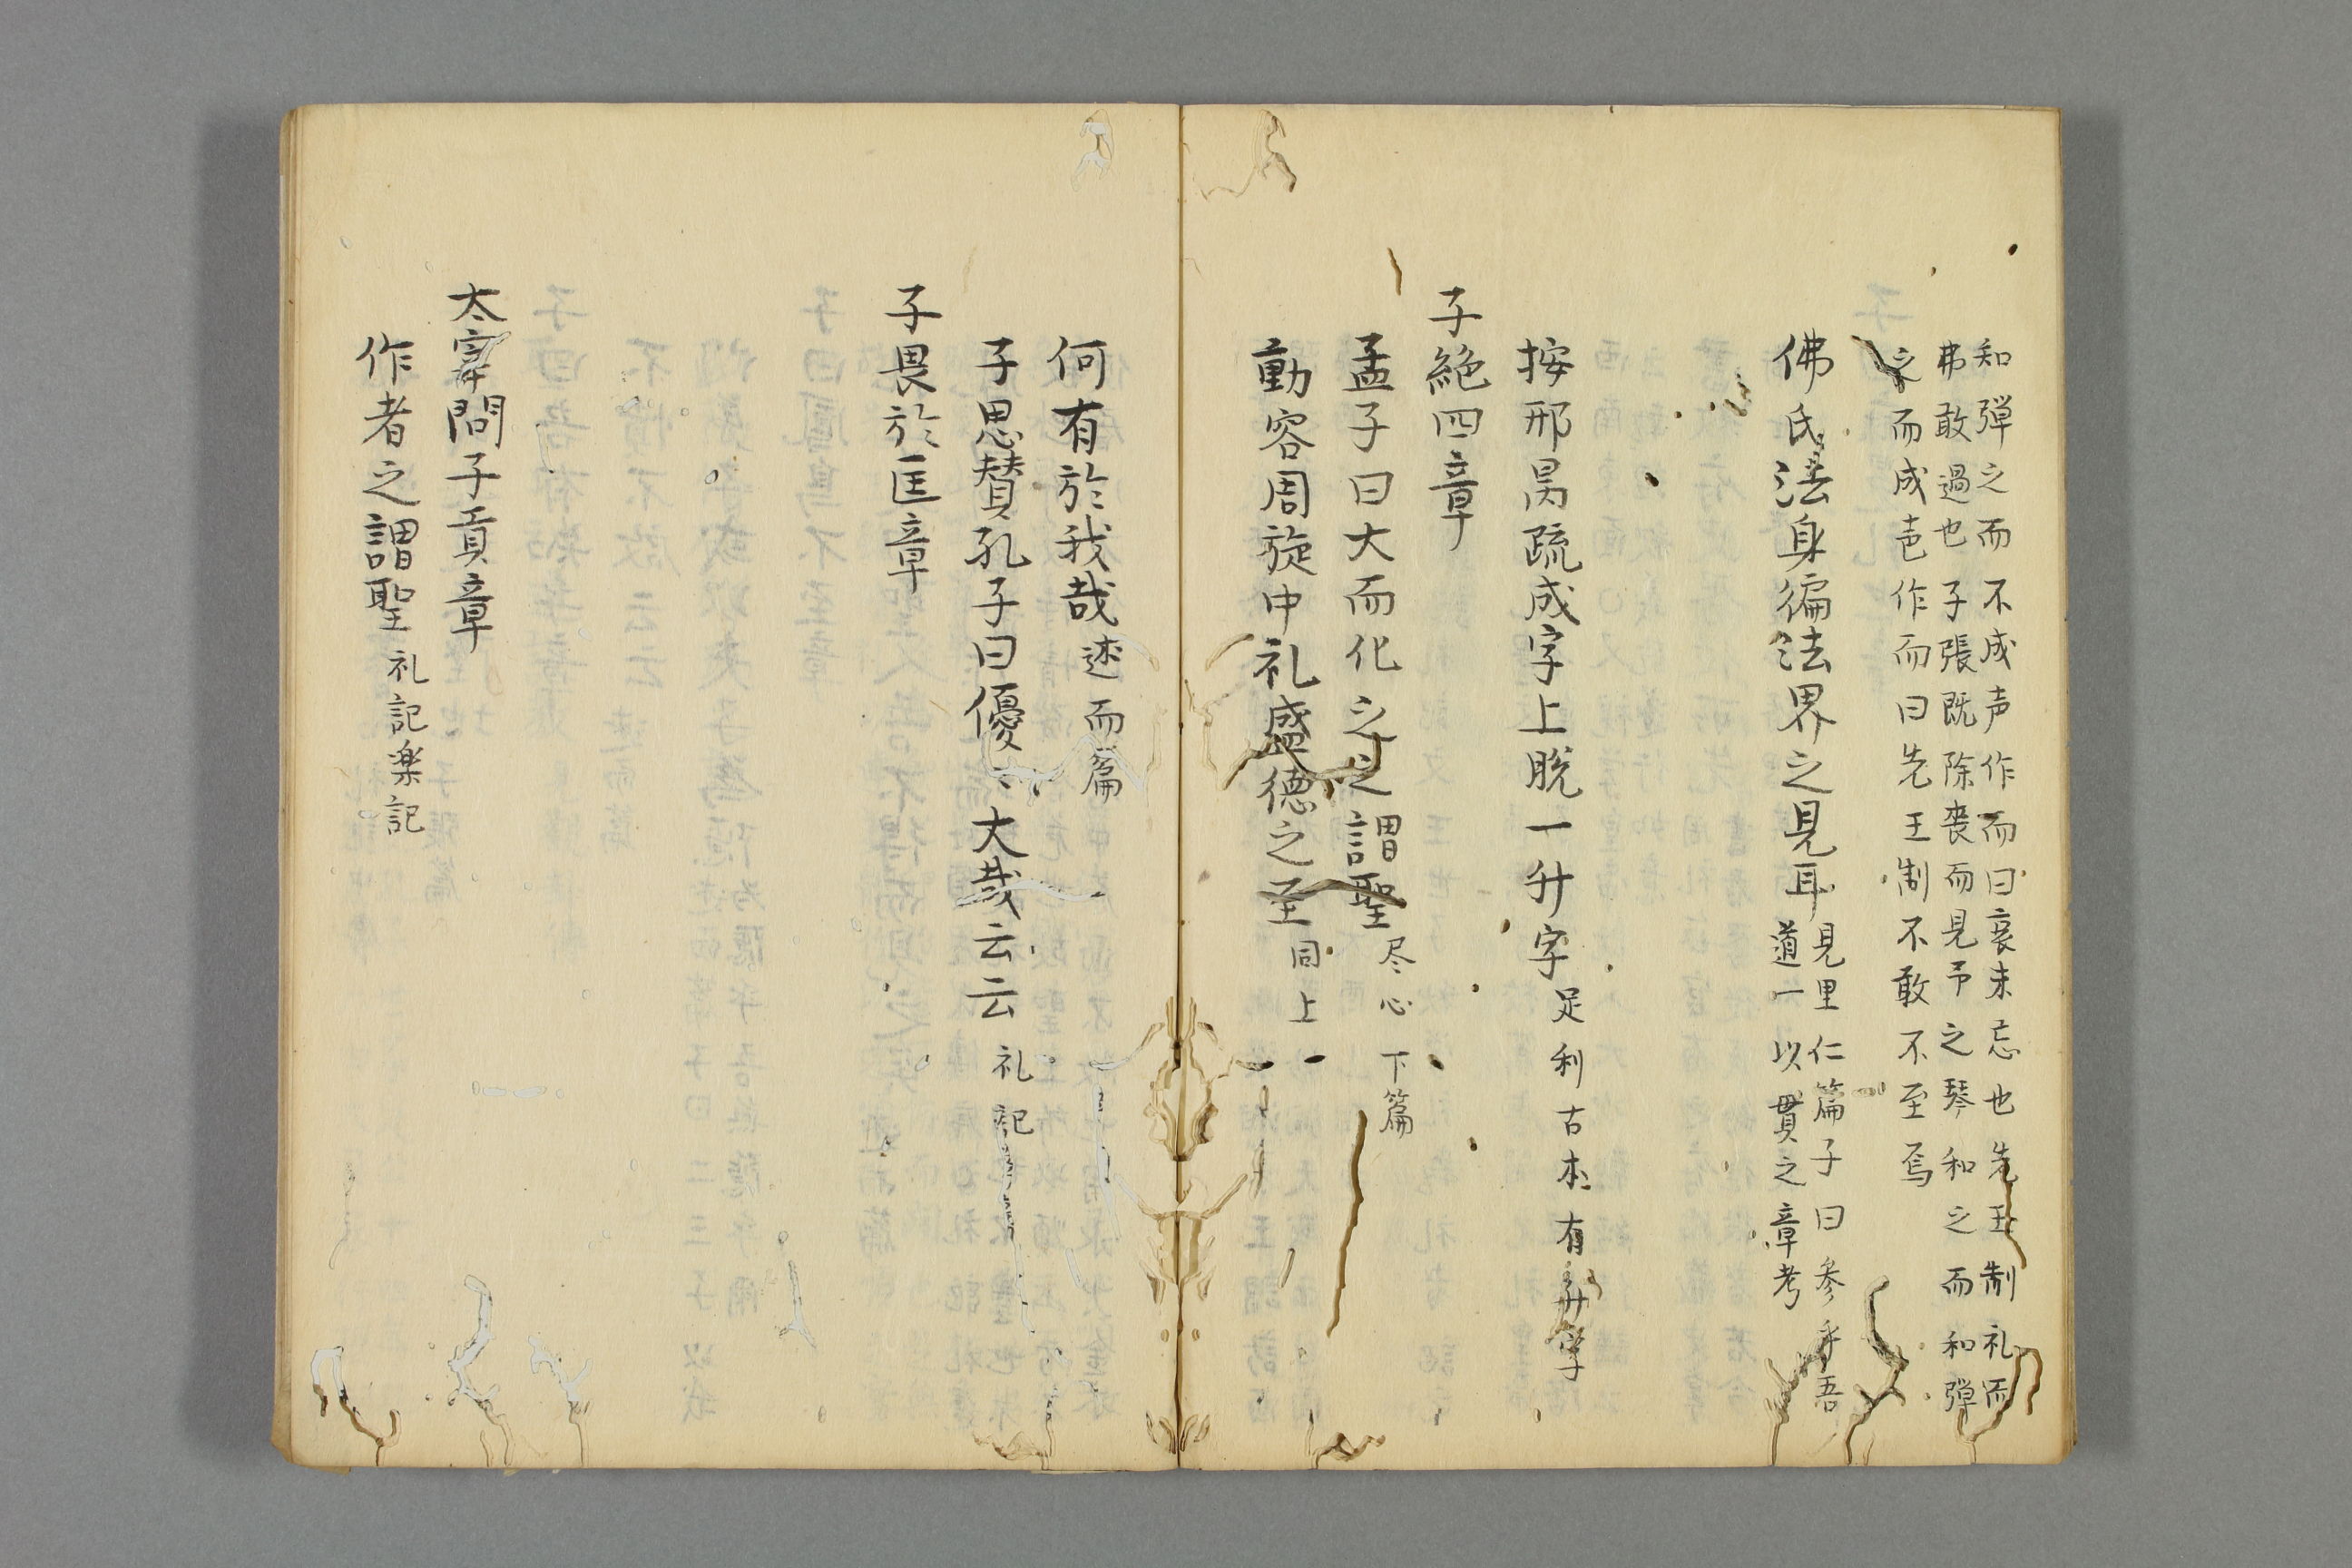 知彈之而不成声作而曰哀未忘也先王制礼而
弗敢過也子張既除喪而見予之琴和之而和彈
之而成声作而曰先王制不敢不至焉
佛氏法身徧法界之見耳見里仁篇子曰参乎吾
道一以貫之章考
按邢昺疏成字上脱一升字足利古本有升字
子絶四章
孟子曰大而化之之謂聖尽心下篇
動容周旋中礼盛徳之至同上
何有於我哉述而篇
子思賛孔子曰優〻大哉云云礼記
子畏於匡章
太宰問子貢章
作者之謂聖礼記楽記